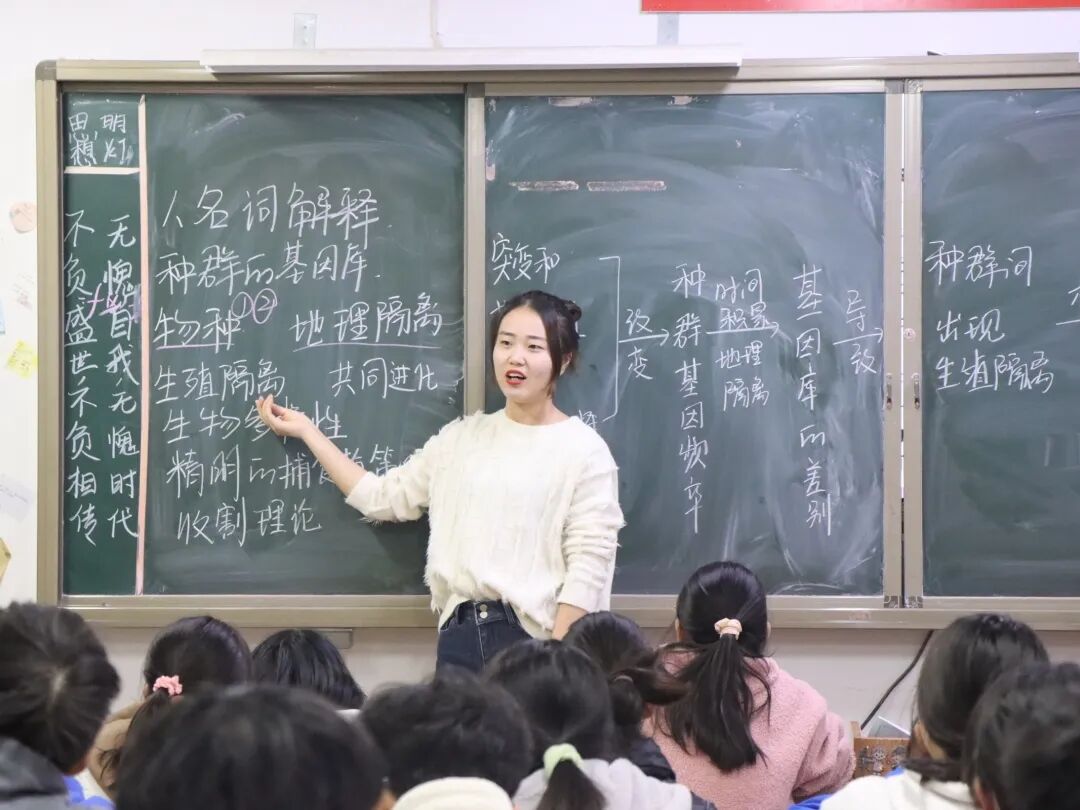 思想,明灯
无愧自我无愧时代
不负盛世不负相传
人名词解释
种群的基因库.
物种①② 地理隔离
生殖隔离 共同进化
生物多样性
精明的捕食者策
收割理论
突变和
改变
种群基因频率
时间积累
地理隔离
基因库的差别
导致
种群间
出现
生殖隔离